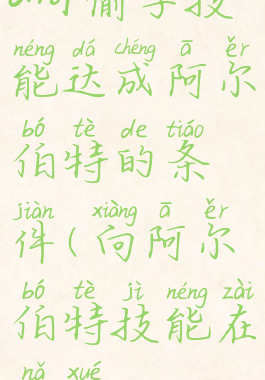 愉学技
néng dá chéng ā ěr
能达成阿尔
bó tè de tiáo
伯特的条
jiàn xiàng ā ěr
件(向阿尔
bó tè jì néng zài
伯特技能在
nǎ xué